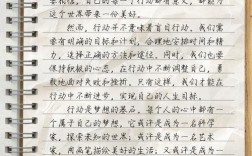 要相信，自己的每一个行动都有意义，都能为
这个世界带来一份美好。
然而，行动并不意味着盲目行动。我们需
要有明确的目标和计划，合理地安排时间和精
力，选择正确的方法和途径。同时，我们也要
保持积极的心态，在行动中不断调整自己，勇
敢地面对失败和挫折。只有这样，我们才能在
行动中不断进步，实现自己的人生目标。
行动是梦想的基石。每个人的心中都有一
个属于自己的梦想。它或许是成为一名科学
家，探索未知的世界；它或许是成为一名艺术
家，用画笔描绘美好的生活；又或许是成为一